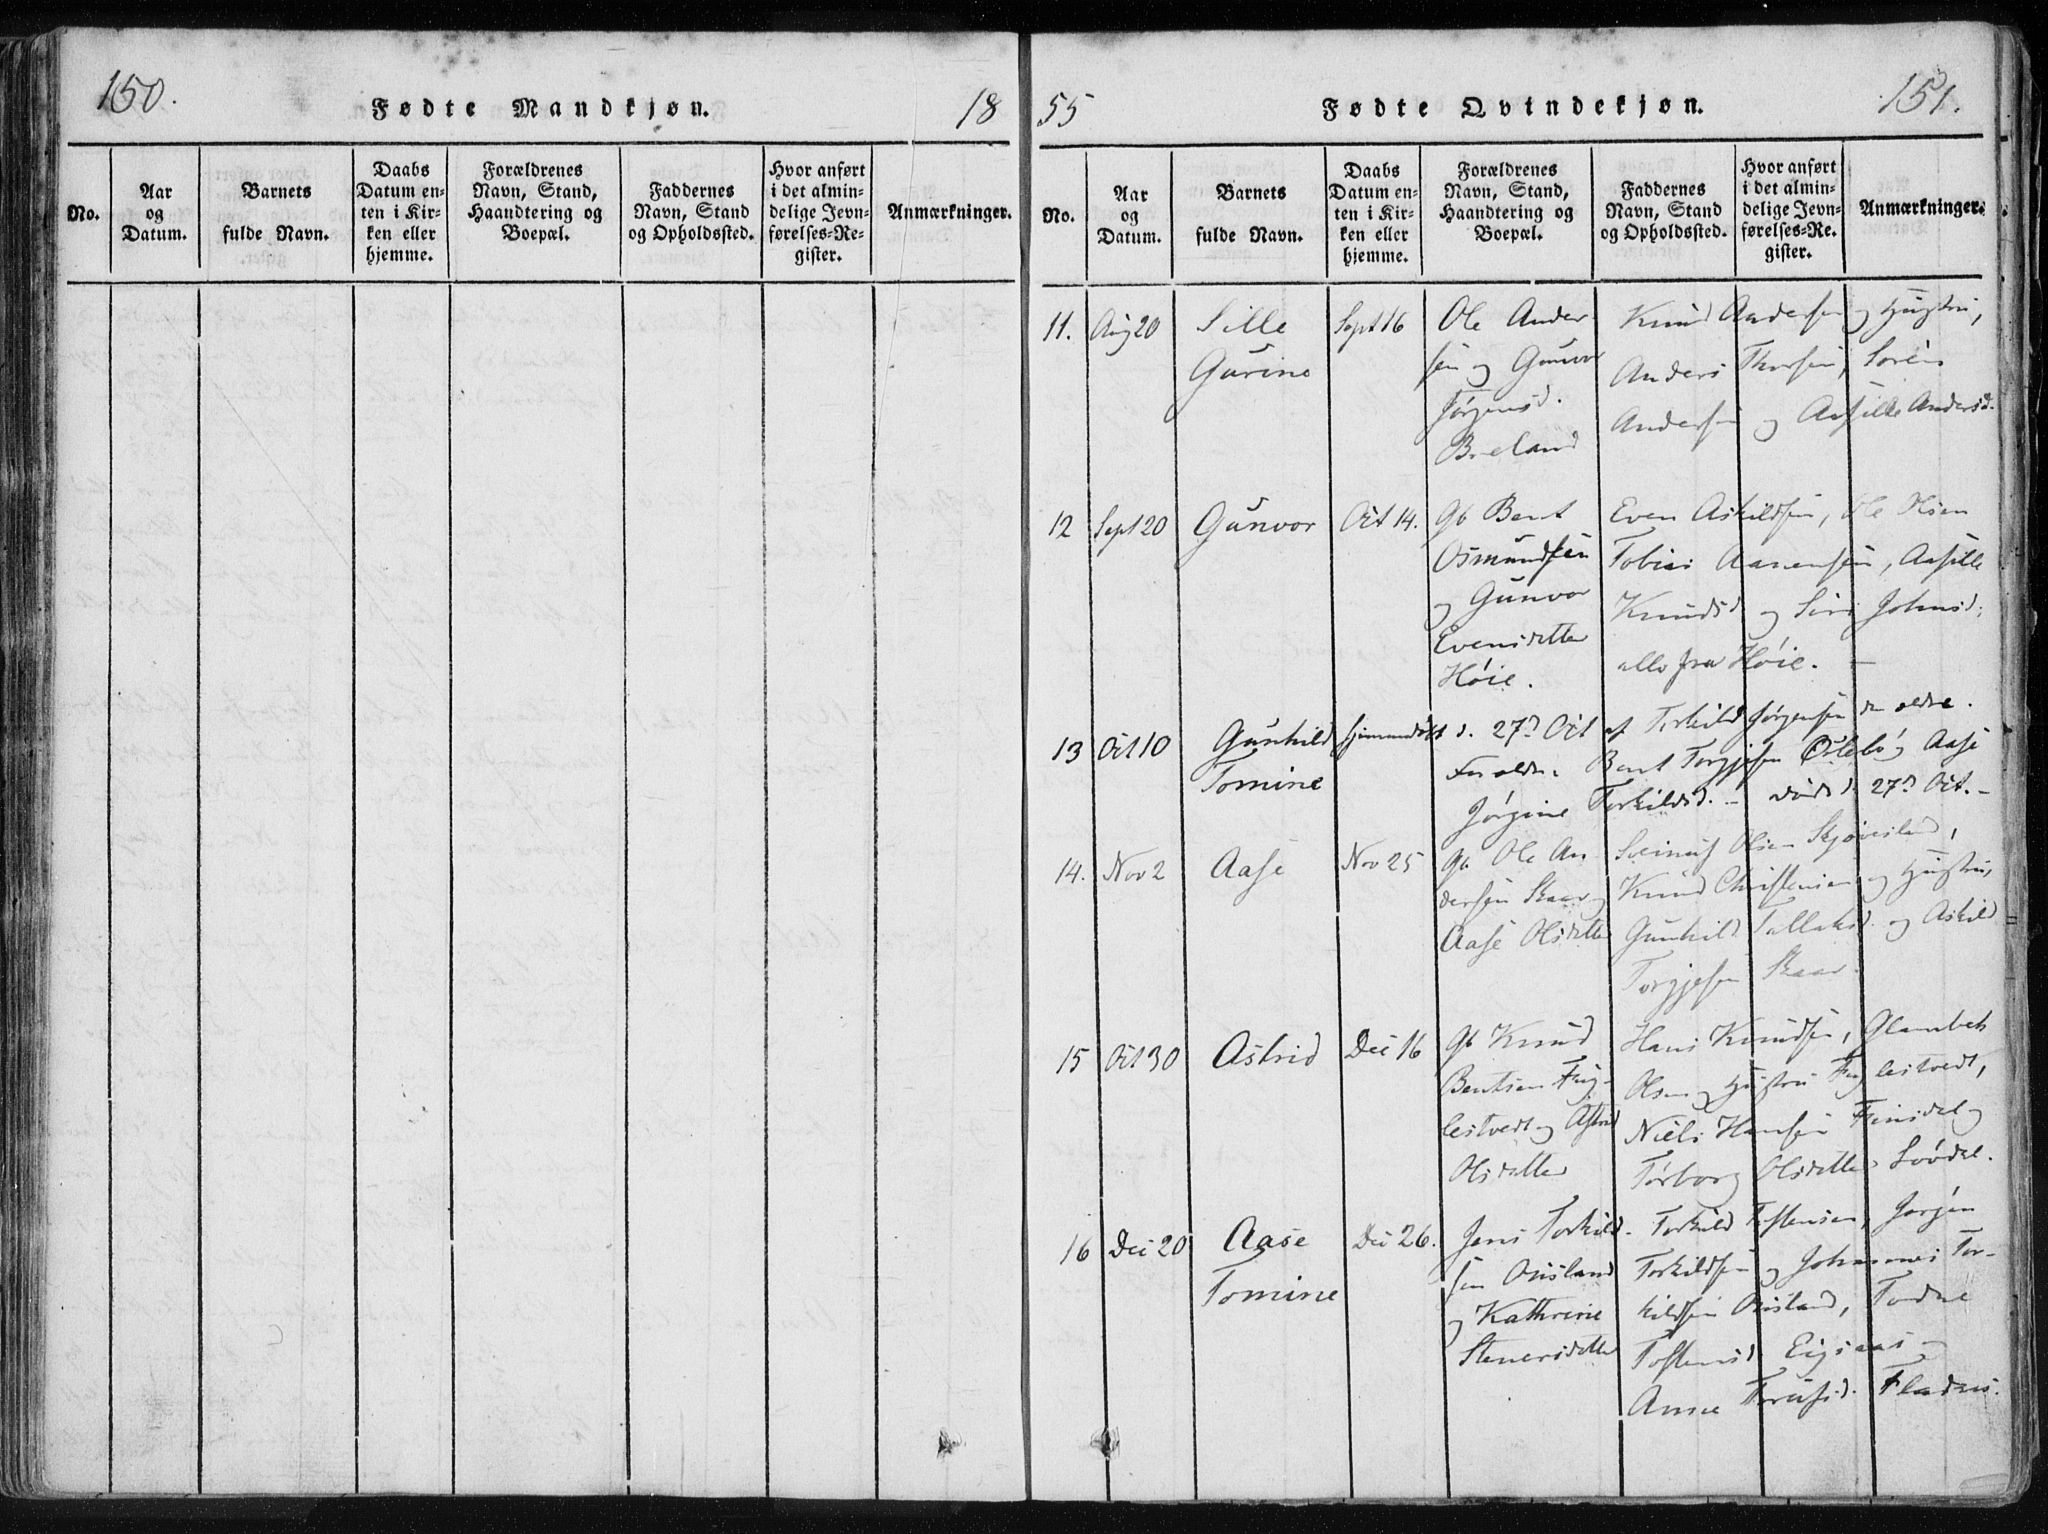 150.
Fødte Mandkjøn.
18
No.
Aar og Datum.
Barnets fulde Navn.
Daabs Datum enten i Kirken eller hjemme.
Forældrenes Navn, Stand, Haandtering og Boepæl.
Faddernes Navn, Stand og Opholdssted.
Hvor anført i det almindelige Jevnførelses-Register.
Anmærkninger.
55
Fødte Qvindekjøn.
151.
No.
Aar og Datum.
Barnets fulde Navn.
Daabs Datum enten i Kirken eller hjemme.
Forældrenes Navn, Stand, Haandtering og Boepæl.
Faddernes Navn, Stand og Opholdssted.
Hvor anført i det almindelige Jevnførelses-Register.
Anmærkninger.
11. Aug 20
Sille
Gurine
Sept 16
Ole Ander
sen og Gunvor
Jørgensd.
Breland
Knud Andersen og Hustru,
Anders Thorsen, Søren
Andersen og Aasille Andersd.
12 Sept 20
Gunvor
Oct 14.
Gb Bent
Osmundsen
og Gunvor
Evensdatter
Høie.
Even Askildsen, Ole Olsen
Tobias Aanensen, Aasille
Knudsd og Siri Johnsd.
alle fra Høie. —
13 Oct 10
Gunhild
Tomine
hjemmedøbt d. 27d Oct af Torkild Jørgensen den ældre.
Forældre Bent Torgjesen og Aase
Jørgine Torkildsd. – død d. 27d Oct. –
14. Nov 2
Aase
Nov 25
Gb Ole An
dersen Skaar og
Aase Olsdatter
Olsen
Knud Christensen og Hustru,
Gunhild Tallaksd. og Askild
Torgjesen Skaar.
15 Oct 30
Astrid
Dec 16
Gb Knud
Bentsen Fug-
lestvedt og Astrid
Olsdatter
Hans Knudsen, Glambek
Olsen og Hustru Fuglestvedt,
Niels Hansen Finsdal og
Torborg Olsdatter Lovdal.
16 Dec 20
Aase
Tomine
Dec 26.
Jens Torkild-
sen Ousland
og Kathrine
Stenersdatter
Torkild Toftensen, Jørgen
Torkildsen og Johannes Tor-
kildsen Ousland, Tordne
Toftensd Eigsaas og
Anne Trulsd. Fladnes.